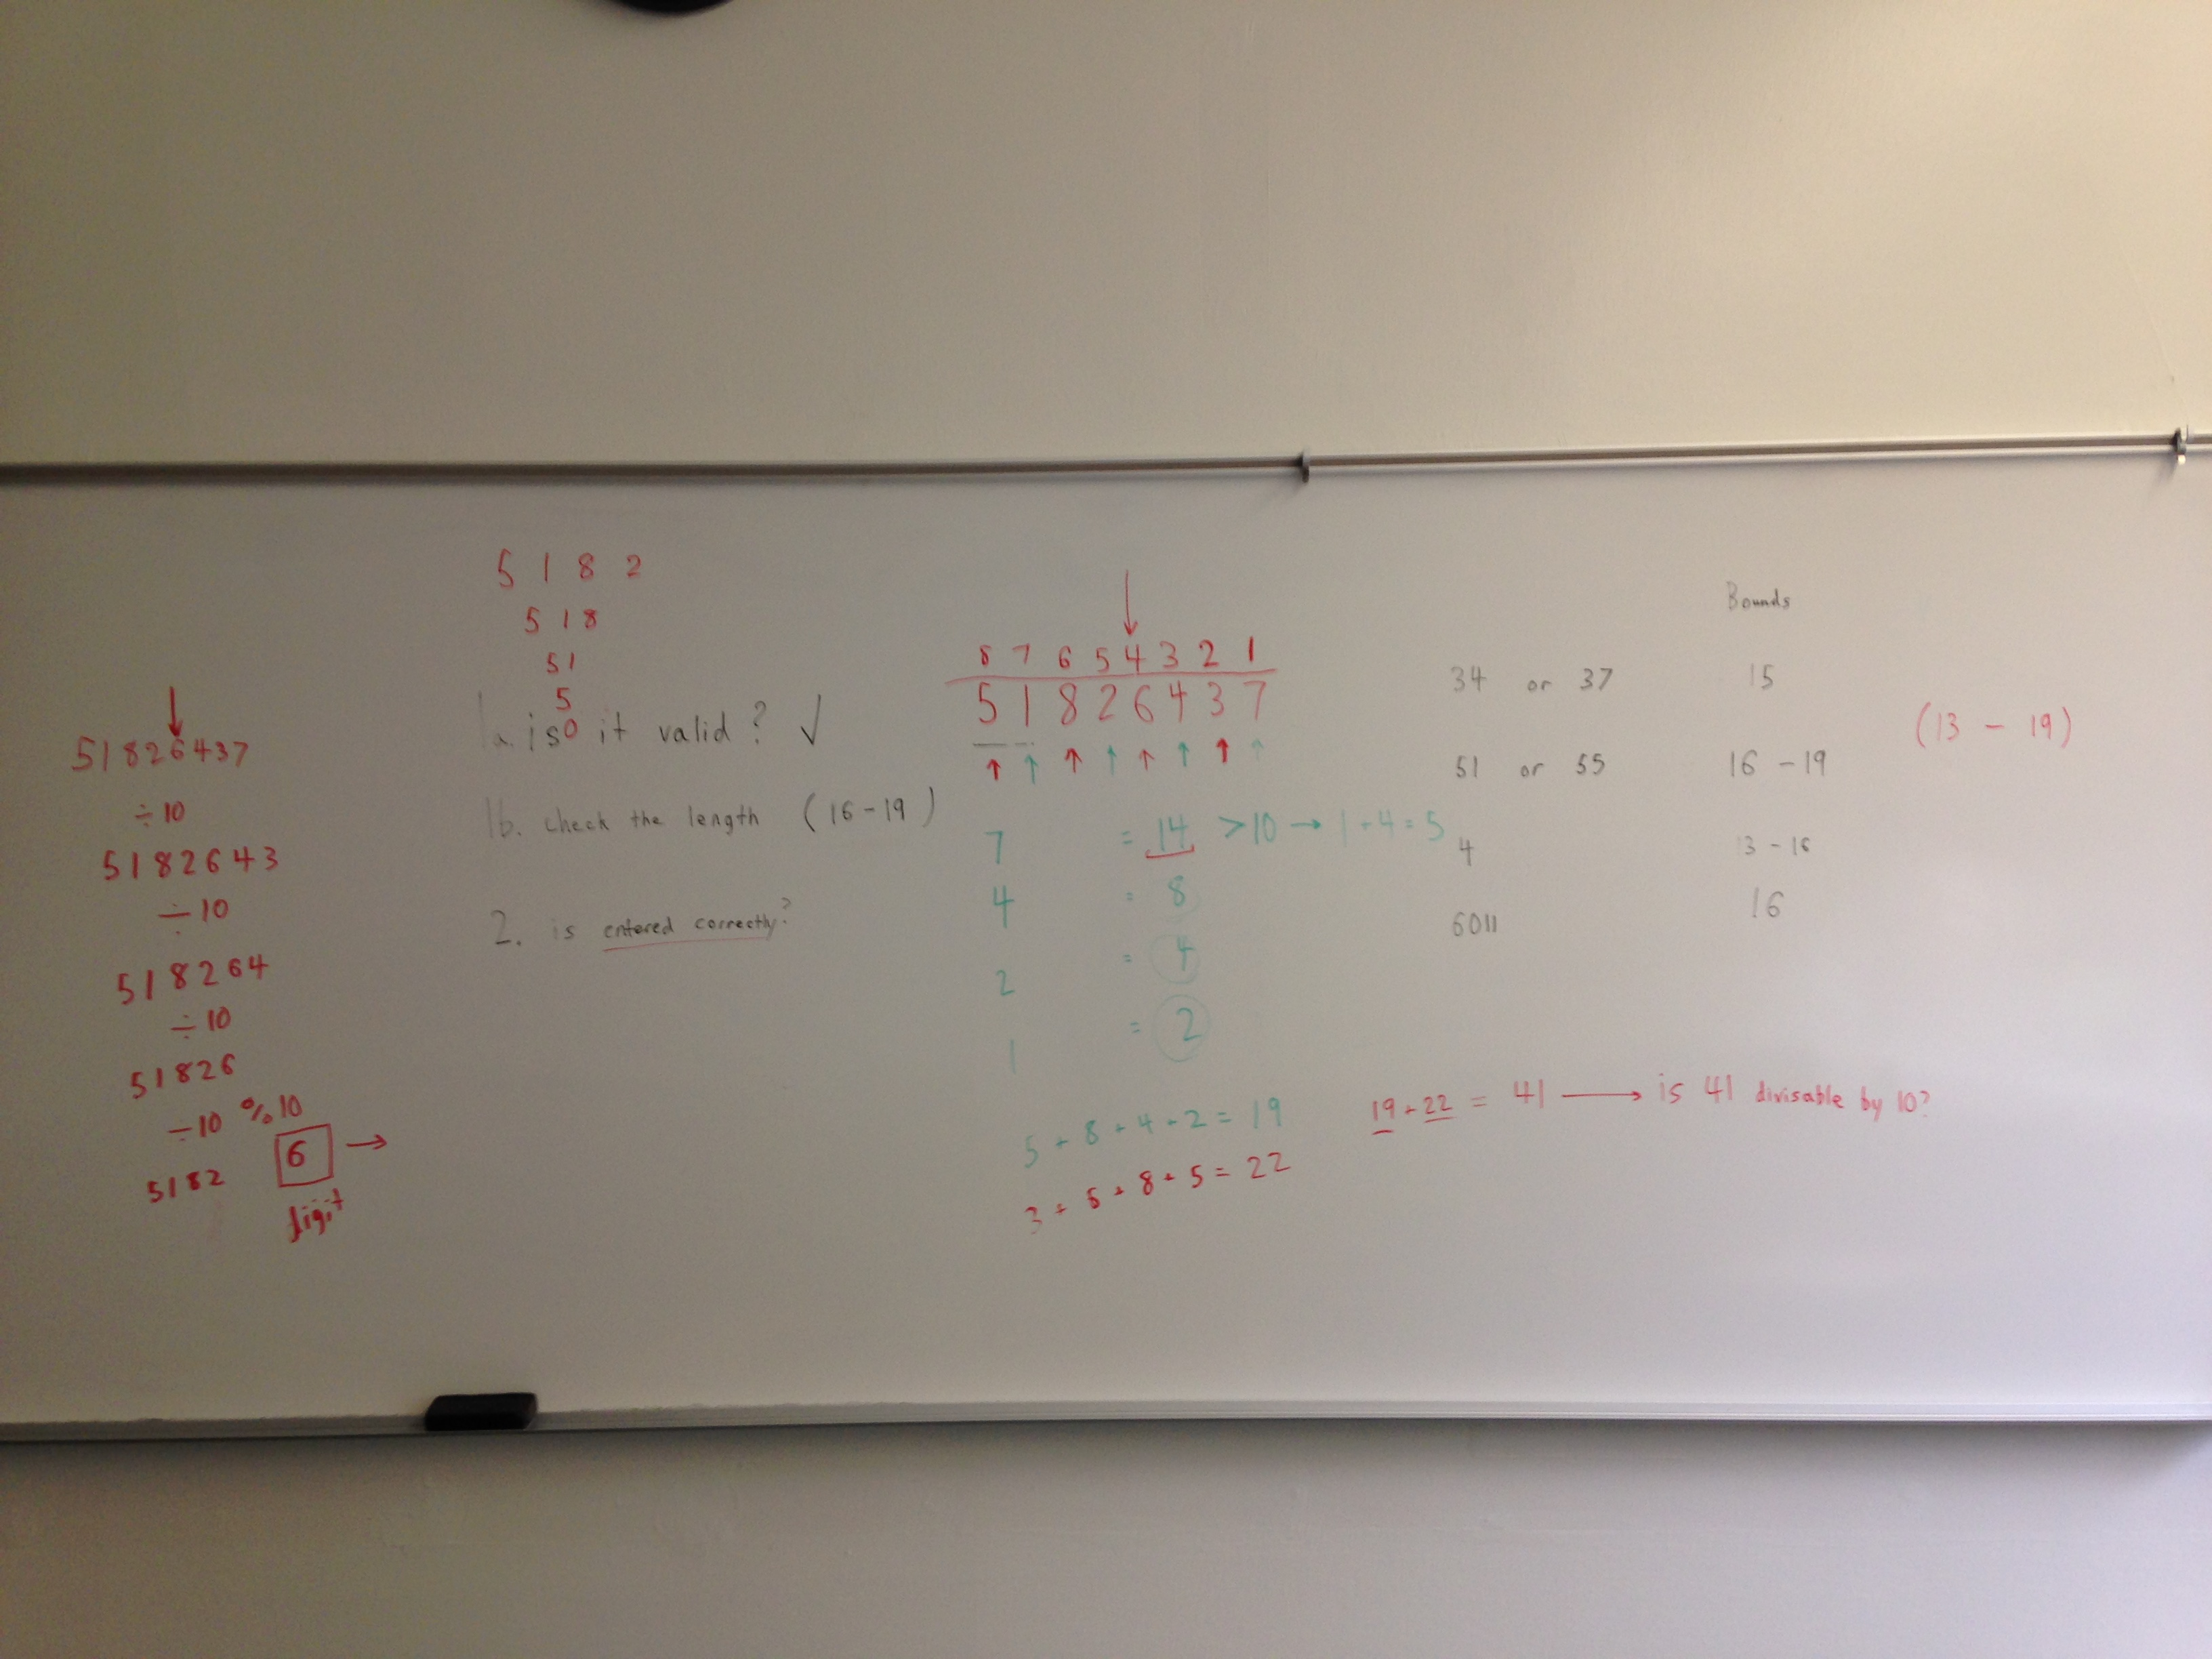 51826437
÷10
5182643
÷10
518264
÷10
51826
÷10 %10
5182 6 →
digit
5 1 8 2
5 1 8
51
5
0
1a. is it valid? √
1b. check the length (16-19)
2. is entered correctly?
8 7 6 5 4 3 2 1
5 1 8 2 6 4 3 7
7 = 14 >10 → 1+4=5
4 = 8
2 = 4
1 = 2
5+8+4+2=19
3+6+8+5=22
19+22 = 41 → is 41 divisable by 10?
Bounds
34 or 37 15
51 or 55 16-19
4 13-16
6011 16
(13 - 19)